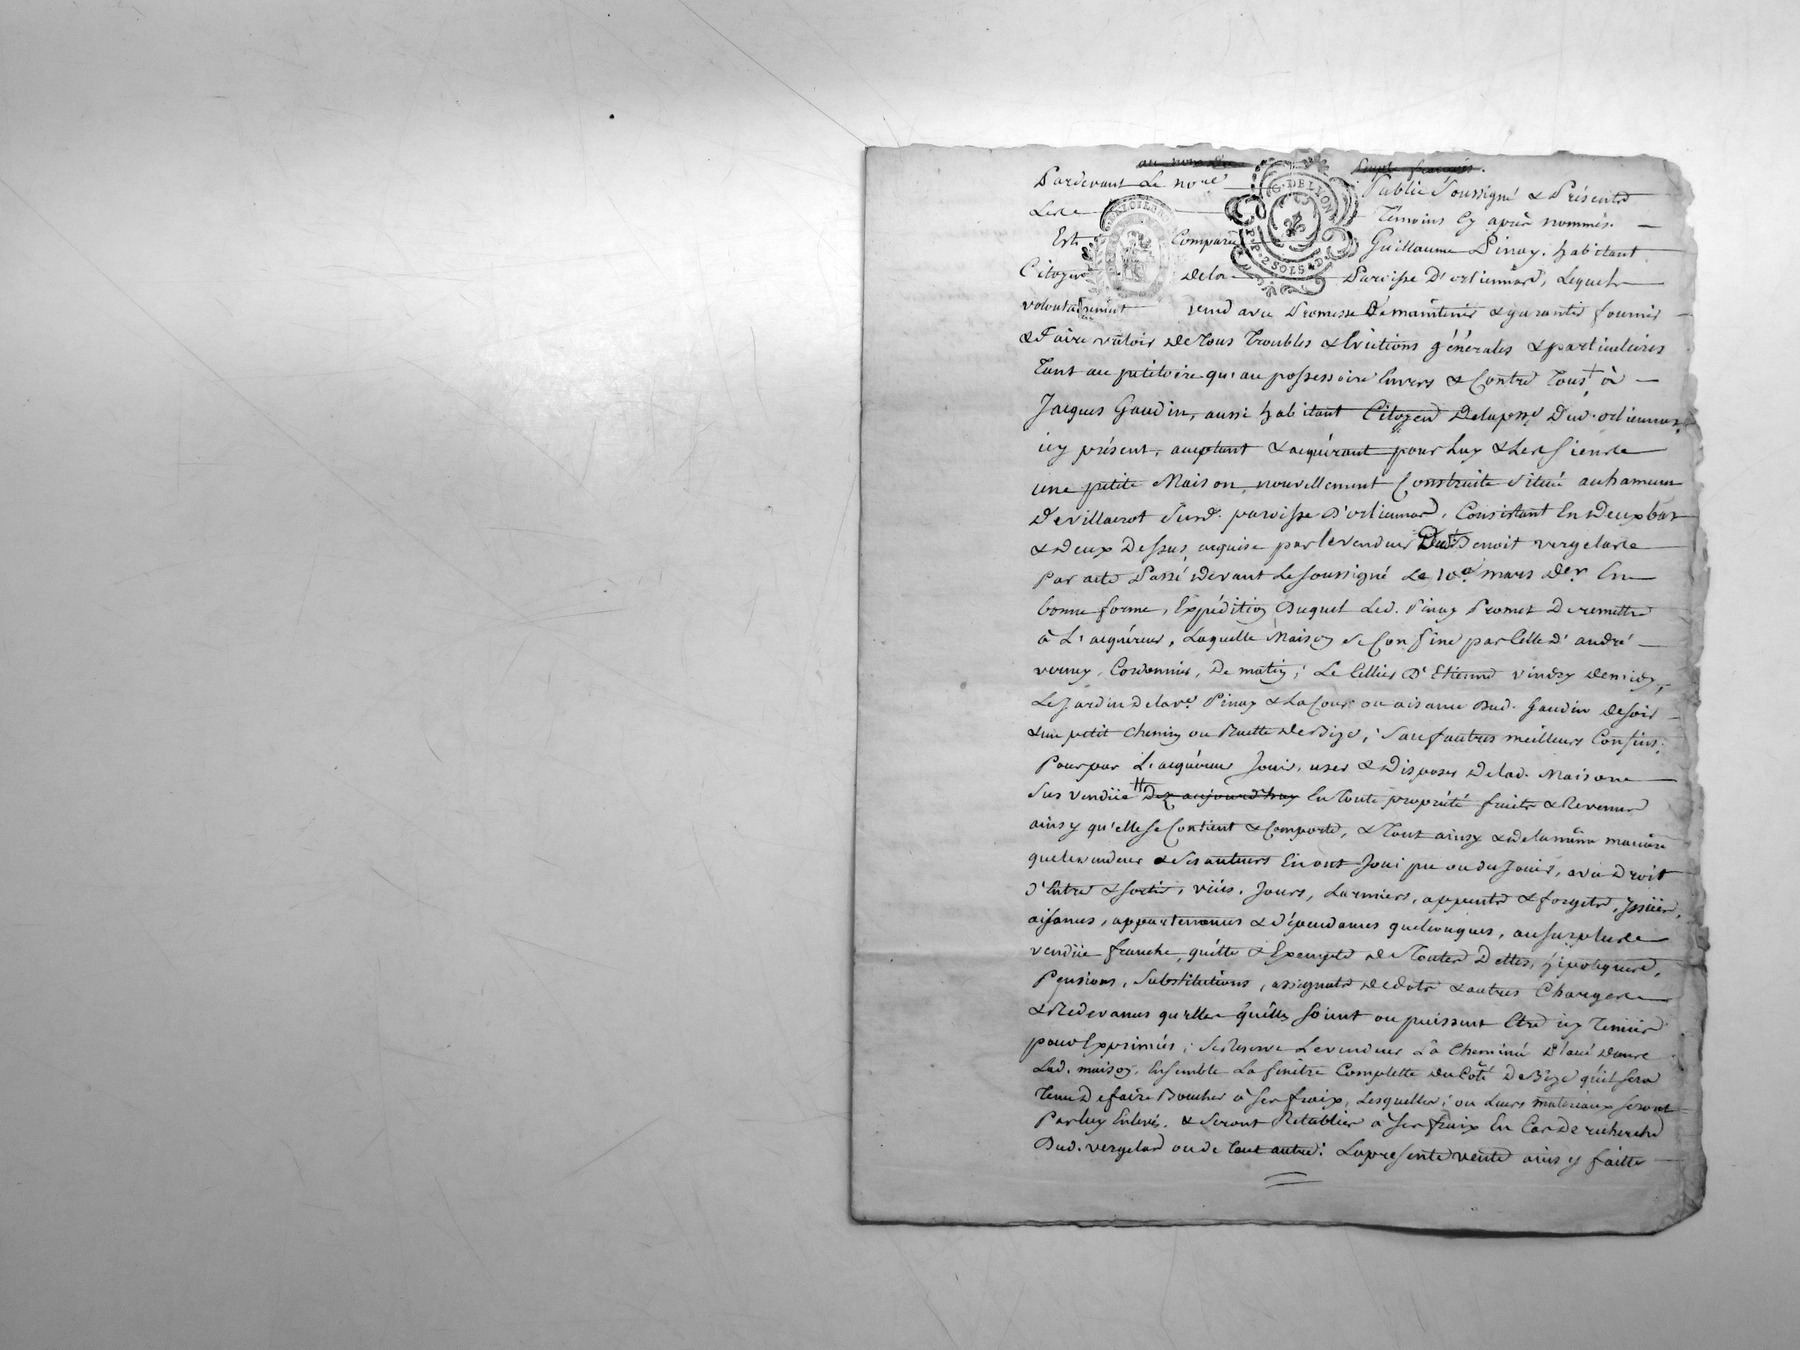 au nom du peuple français.
Pardevant Le no.re Public Soussigné & Présents
Les Témoins Cy après nommés. —
Est Comparu Guillaume Pinay, habitant
G. DE LYON
P. 2 SOLS 4 D.
Citoyen dela Paroisse D'orliennas, Lequel
volontairement vend avec Promesse De maintenir & garantir fournir —
& Faire valoir de Tous Troubles & Evictions générales & particulieres
Tant au petitoire qu'au possessoire Envers & Contre Tous + à —
Jacques Gaudin, aussi habitant Citoyen Delapsse Dud. orliennas,
icy présent, acceptant & acquérant pour Luy & Les Siens
une petite Maison, nouvellement Construite Située auhameau
De villacrot Susd. paroisse D'orliennas, Consistant En Deux bas
& Deux Dessus, acquise par le vendeur Dud. Benoit vergelas
Par acte Passé devant Le soussigné Le 10e mars Der. En
bonne forme, Expédition Duquel Led. Pinay Promet De remettre
à L'acquéreur, Laquelle Maison se Confine par Celle d'andré —
verney, Cordonnier, De matin; Le Cellier D'Etienne vindry de midy,
Le Jardin Dela ve. Pinay & La Cour ou aisance Dud. Gaudin de soir —
& un petit chemin ou Ruette de Bize; Sauf autres meilleurs Confins;
Pour par L'acquéreur Jouir, user & Disposer Delad. Maison
Sus vendüe # Dez aujourd'huy En Toute propriété fruits & Revenus
ainsy qu'elle se Contient & Comporte, & Tout ainsy & de la même manière
que le vendeur & Ses auteurs En ont Joui pu ou du Jouir, avec Droit
D'Entrée & sortie, vües, Jours, Larmiers, appents & forgets, Issües,
aisances, appartenances & dépendances quelconques, au surplus
vendüe franche, quitte & Exempte de Toutes Dettes, hipotèques,
Pensions, Substitutions, assignats de dots & autres Charges
& Redevances quelles qu'elles soient ou puissent Etre icy Tenües
pour Exprimées; Se Réserve Le vendeur La Cheminée Placée dans
Lad. maison, Ensemble La fenêtre Complette du Côté De Bize qu'il sera
Tenu De faire Boucher à ses fraix, Lesquelles; ou Leurs matériaux seront
Par luy Enlevés, & seront Rétablies à ses fraix En Cas De recherche
Dud. vergelas ou de tout autre: La présente vente ainsy faitte —